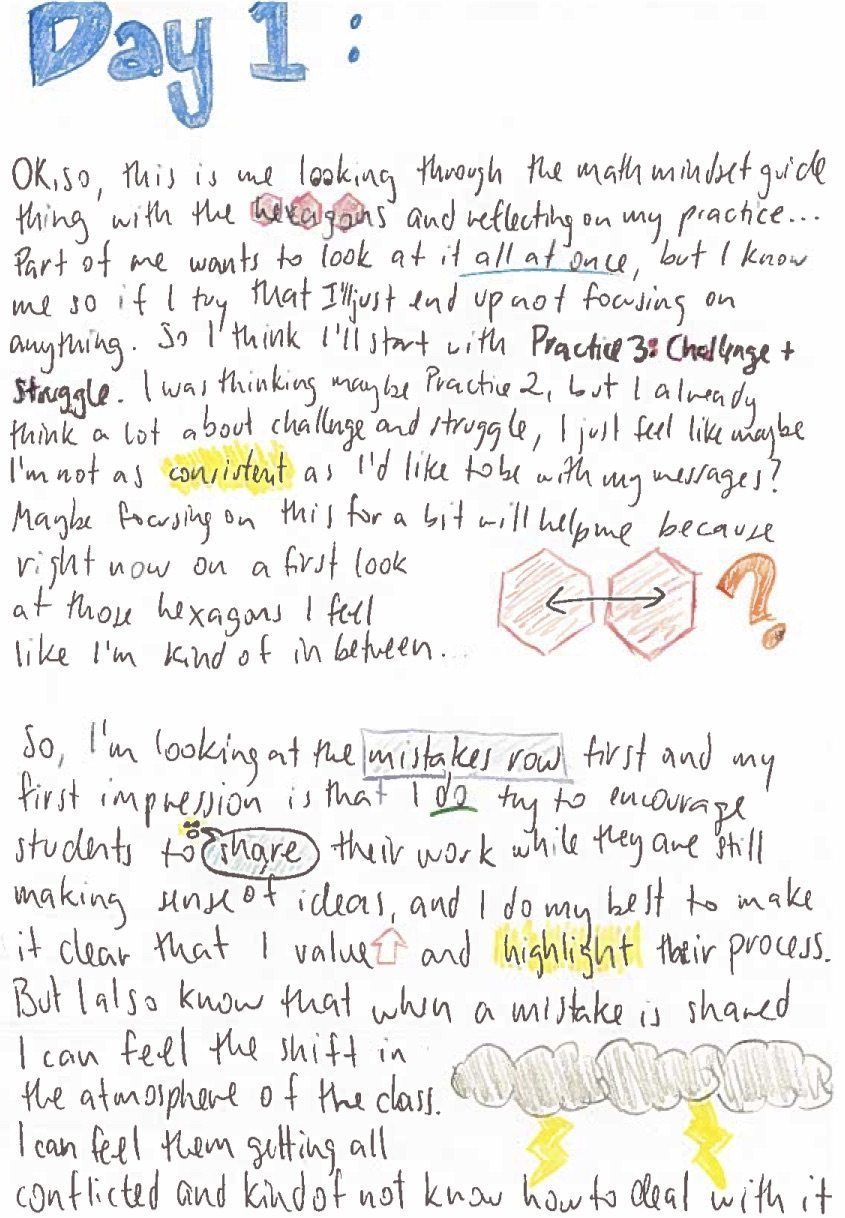 Day 1:
OK, so, this is me looking through the math mindset guide
thing with the hexagons and reflecting on my practice...
Part of me wants to look at it all at once, but I know
me so if I try that I'll just end up not focusing on
anything. So I think I'll start with Practice 3: Challenge +
Struggle. I was thinking maybe Practice 2, but I already
think a lot about challenge and struggle, I just feel like maybe
I'm not as consistent as I'd like to be with my messages?
Maybe focusing on this for a bit will help me because
right now on a first look
at those hexagons I feel
like I'm kind of in between.
?
So, I'm looking at the mistakes row first and my
first impression is that I do try to encourage
students to share their work while they are still
making sense of ideas, and I do my best to make
it clear that I value and highlight their process.
But I also know that when a mistake is shared
I can feel the shift in
the atmosphere of the class.
I can feel them getting all
conflicted and kind of not know how to deal with it